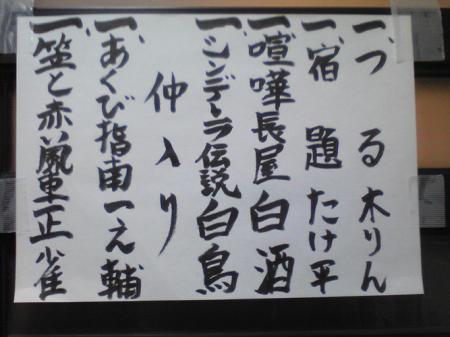 一、つる 木りん
一、宿題 たけ平
一、喧嘩長屋 白酒
一、シンデレラ伝説 白鳥
仲入り
一、あくび指南 一之輔
一、笠と赤い風車 正雀